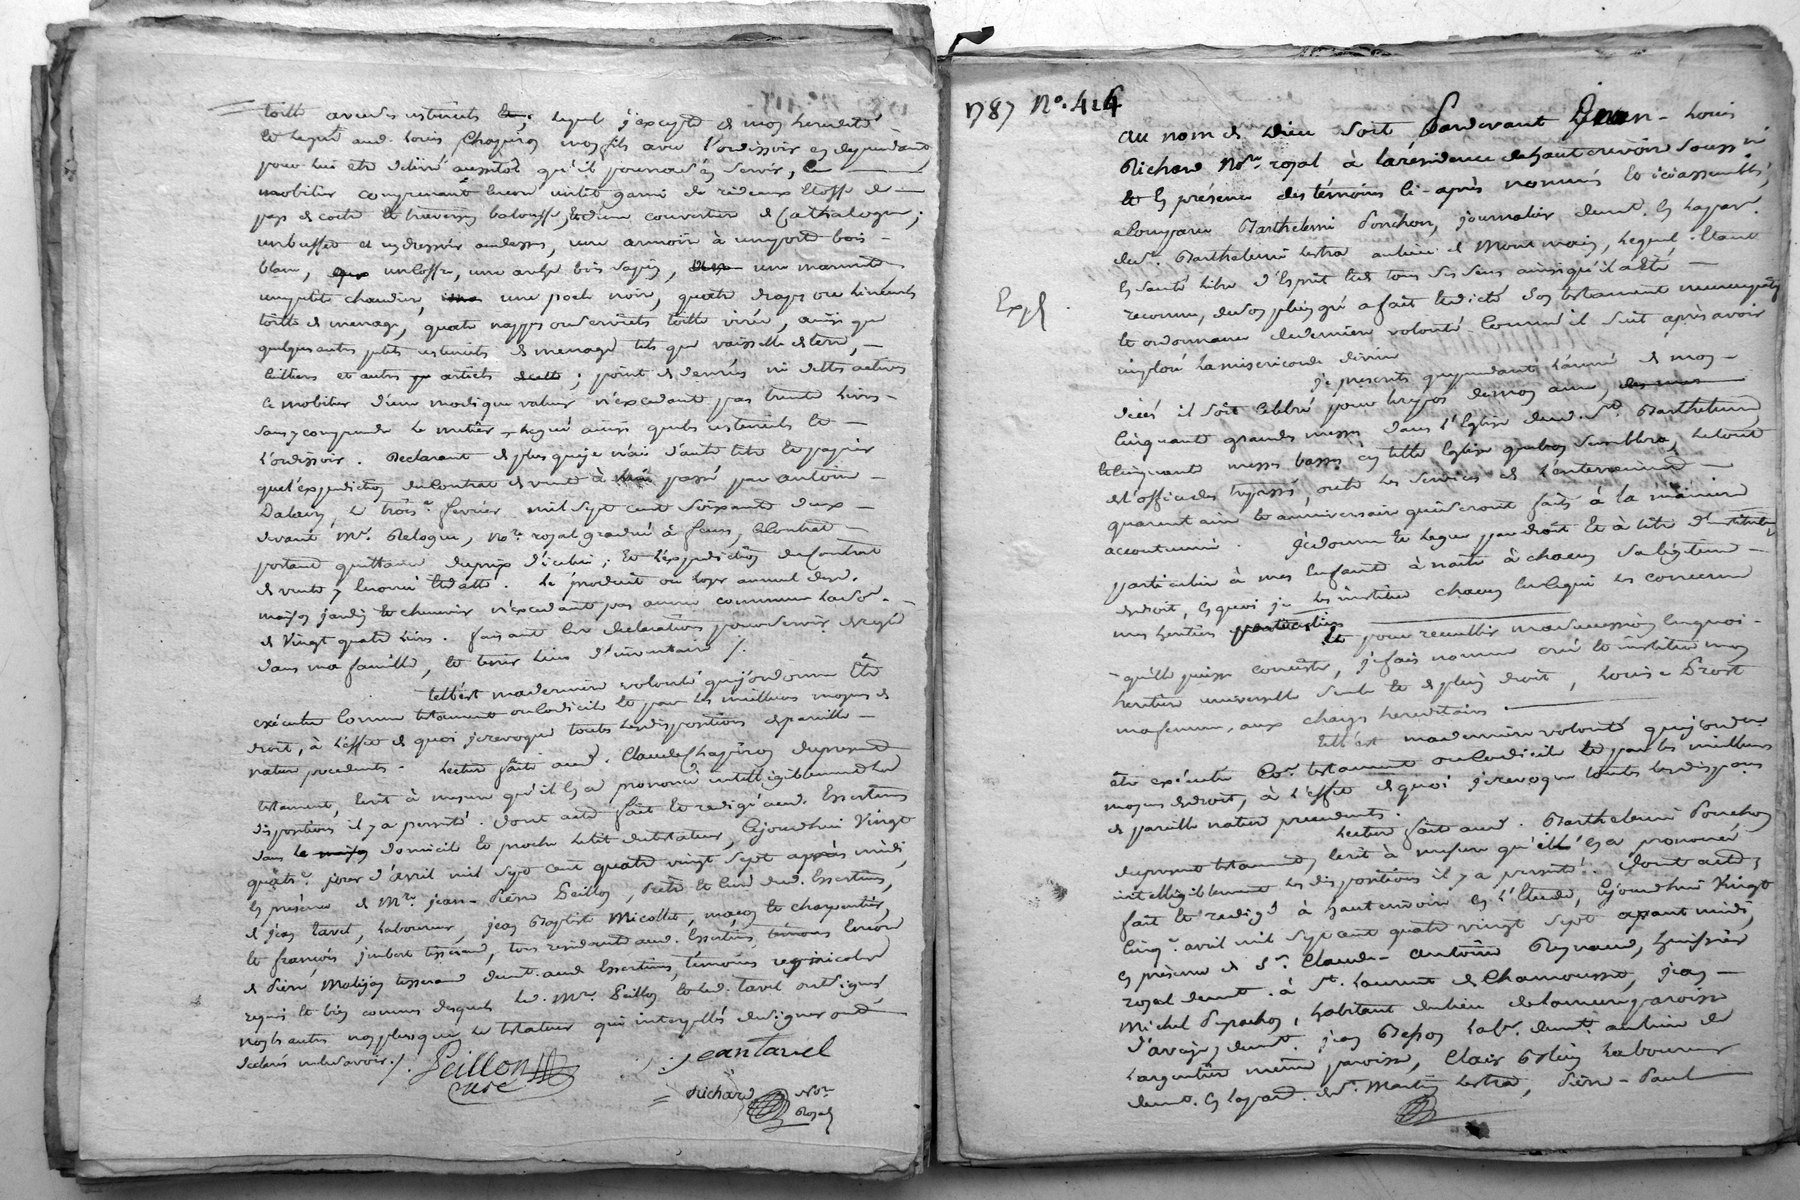 toille avec des ustenciles lequel j'excepte de mon heredité
et legue aud. Louis Chaperon mon fils avec l'ourdissoir en dependant
pour lui etre delivré aussitôt qu'il pourra s'en servir, Ce
mobilier comprenant encore un lit garni de rideaux etoffe de
pays de coete et traversin balouffe, et d'une couverture de Cathalogne;
un buffet et un dressoir au dessus, une armoire à une porte bois
blanc, un coffre, une arche bois sapin, une marmitte,
une petite chaudiere, une poele noire, quatre draps ou linceuls
toille de menage, quatre nappes ou serviettes toille virée, ainsi que
quelques autres petits ustenciles de menage tels que vaisselle de terre,
cuilliers et autres articles ; point de denrées ni dettes actives
Ce mobilier d'une modique valeur n'excedant pas trente livres
sans y comprendre le metier legué ainsi que les ustenciles et
l'ourdissoir. Declarant de plus que je n'ai d'autre titre et papier
que l'expedition du Contrat de vente à passé par antoine
Dalay, le trois.e fevrier mil sept cent soixante deux
devant M.e Relogue, No.re royal gradué à feurs, le Contrat
portant quittance du prix d'icelui; et l'expedition du Contrat
de vente y enoncé et datté. Le produit ou loyer annuel de lad.
maison jardin et cheneviere n'excedant pas année commune la so.e
de vingt quatre livres. faisant les declarations pour servir de regle
dans ma famille, et tenir lieu d'inventaire /.
telle est ma derniere volonté que j'ordonne être
exécutée comme testament ou codicile et par les meilleurs moyens de
droit, à l'effet de quoi je revoque toutes les dispositions de pareille
nature precedentes. Lecture faite aud. Claude Chaperon du present
testament, ecrit à mesure qu'il en a prononcé intelligiblement les
dispositions il y a persisté. dont acte fait et redigé aud. Essertines
dans domicile et proche le lit du testateur, Cejourdhui Vingt
quatr.e jour d'avril mil sept cent quatre vingt sept après midi,
En présence de M.re jean-Pierre Peillon, Prêtre et Curé dud. Essertines,
de jean tavel, laboureur, jean Baptiste Micollet, maçon et charpentier,
et françois jimbert tisserand, tous residants aud. Essertines, témoins encore
de Pierre tisserand demt. aud. Essertines, témoins
requis et bien connus desquels led. M.re Peillon et led. tavel ont signé
non les autres non plus que le testateur qui interpellés de signer ont
declaré ne le savoir./.
Peillon
Curé
jean tavel
Richard No.re
Royal
1787 N.o 416
Expé
au nom de Dieu Soit Pardevant Jean-Louis
Richard No.re royal à la résidence de hauterivoire soussigné
et En présence des témoins Ci-après nommés et ici assemblés,
a Comparu Barthelemi Ponchon, journalier demt. En la par.
de S.t Barthelemi Lestra au lieu de Montmain, Lequel Etant
En santé libre d'Esprit et de tous ses sens ainsi qu'il a été
reconnu, de son plein gré a fait et dicté son testament nuncupatif
et ordonnance de derniere volonté Comme il suit après avoir
imploré la misericorde divine
je prescrits que pendant l'année de mon
décès il soit célébré pour le repos de mon ame,
Cinquante grandes messes dans l'Eglise dud. S.t Barthelemi
et cinquante messes basses en telle Eglise que bon semblera, le tout
de l'office des trepassés, outre les services de l'enterrement
quarantaine et anniversaire qui seront faits à la manière
accoutumée. je donne et legue par droit et à titre d'institution
particuliere à mes Enfants à naitre à chacun sa légitime
de droit, en quoi je les institue chacun en ce qui les concerne
mes heritiers particuliers
et pour recueillir ma succession en quoi
qu'elle puisse consister, je fais nomme créé et institue mon
heritiere universelle seule et de plein droit, Louise Prost
ma femme, aux charges hereditaires.
telle est ma derniere volonté que j'ordonne
être exécutée Co.e testament ou Codicile et par les meilleurs
moyens de droit, à l'effet de quoi je revoque toutes les dispo.ns
de pareille nature precedentes.
Lecture faite aud. Barthelemi Ponchon
du present testament, ecrit à mesure qu'il En a prononcé
intelligiblement les dispositions il y a persisté. Dont acte,
fait et redigé à hauterivoire En l'Etude, Cejourdhui Vingt
Cinq.e avril mil sept cent quatre vingt sept avant midi,
En présence de S.r Claude-Antoine Reynaud, huissier
royal demt. à S.t Laurent de Chamousset, jean
Michel habitant du lieu de paroisse
d'aveize, demt. jean Besson lab.r demt. au lieu de
Largentiere même paroisse, Clair laboureur
demt. En la par. de S.t Martin Lestra, Pierre-Paul